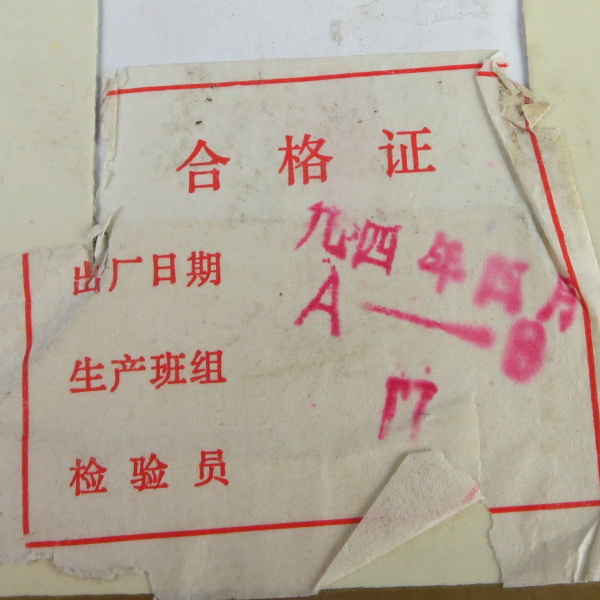 合格证
出厂日期 九四年四月
生产班组 A—8
检验员 17